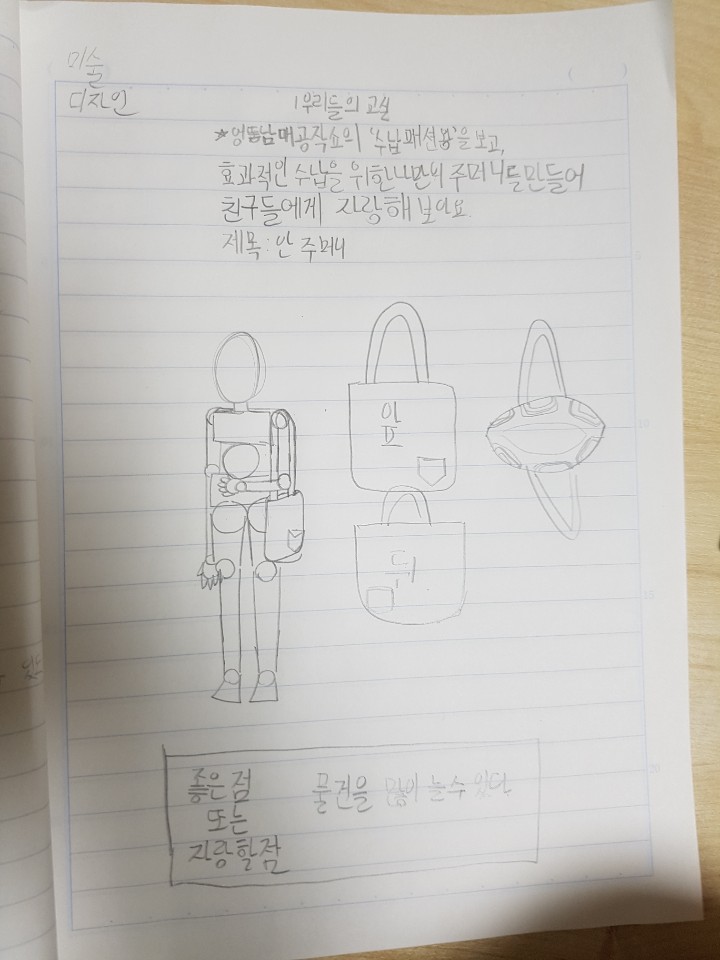 미술
디자인
1 우리들의 교실
★엉뚱남매공작쇼의 '수납패션왕'을 보고,
효과적인 수납을 위한 나만의 주머니를 만들어
친구들에게 자랑해 보아요.
제목: 안 주머니
앞
뒤
좋은점
또는
자랑할점
물건을 많이 놀수 있다